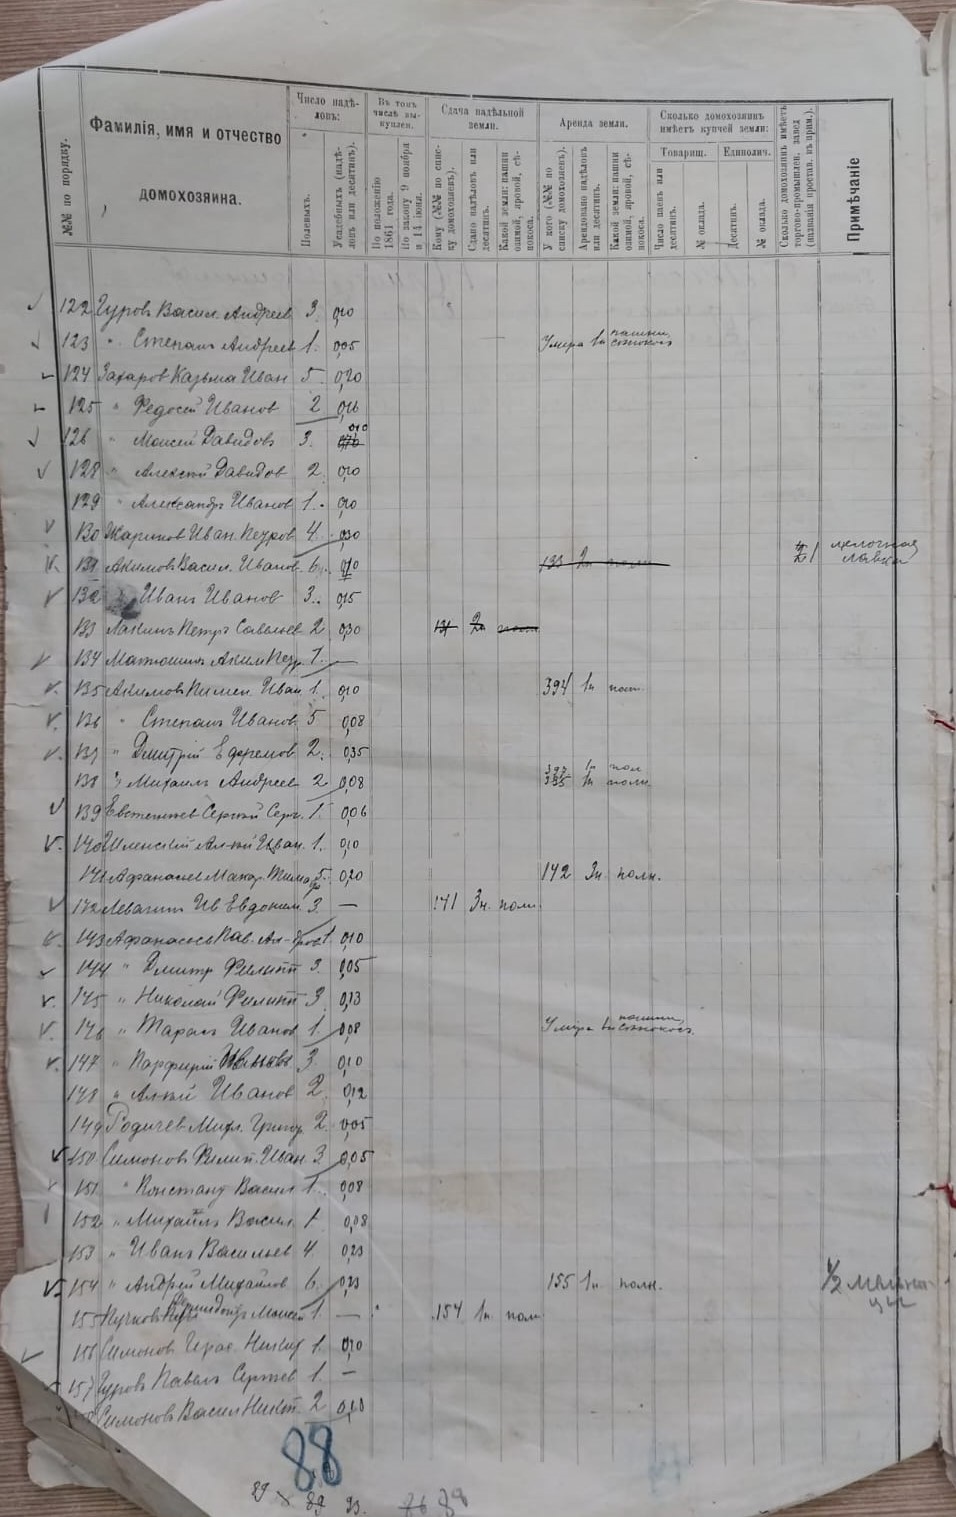 №№ по порядку.
Фамилія, имя и отчество
домохозяина.
Число надѣ-
ловъ:
Полевыхъ.
Усадебныхъ (надѣ-
ловъ или десятинъ).
Въ томъ
числѣ вы-
куплен.
По положенію
1861 года.
По закону 9 ноября
и 14 іюня.
Сдача надѣльной
земли.
Кому (№№ по спис-
ку домохозяевъ).
Сдано надѣловъ или
десятинъ.
Какой земли: пашни
озимой, яровой, сѣ-
нокоса.
Аренда земли.
У кого (№№ по
списку домохозяев).
Арендовано надѣловъ
или десятинъ.
Какой земли: пашни
озимой, яровой, сѣ-
нокоса.
Сколько домохозяинъ
имѣетъ купчей земли:
Товарищ.
Единолич.
Число паевъ или
десятинъ.
№ оклада.
Десятинъ.
№ оклада.
Сколько домохозяинъ имѣетъ
торгово-промышлен. завед.
(названія простав. въ прим.).
Примѣчаніе
122 Гуровъ Васил. Андреев 3. 0,10
123 " Степанъ Андреев 1. 0,05 Умера 1н пашни сенокосъ
124 Захаров Казьма Иван 5. 0,20
125 " Федосей Иванов 2 0,16
126 " Моисей Давидовъ 3. 0,10
128 " Алексей Давидов 2. 0,10
129 " Александръ Иванов 1. 0,10
130 Жариков Иван. Петров 4. 0,30
131 Акимов Васил. Иванов. 6. 0,10 133 2н 1 мелочная лавка
132 " Иванъ Иванов 3. 0,15
133 Лакинъ Петръ Савельев 2 0,30 131 2н
134 Матюшинъ Аким Петр. 1. —
135 Акимовъ Пимен. Иван. 1. 0,10 394 1н полн.
136 " Степанъ Иванов. 5 0,08
137 " Дмитрій Ефремов. 2. 0,35
138 " Михаилъ Андреев 2 0,08 397 1н пол 395 1н полн.
139 Евстигнеев Сергей Серг. 1. 0,06
140 Иван. 1. 0,10
141 Афанасьев Макар. 5. 0,20 142 3н полн.
142 Ив Евдоким. 3. — 141 3н. полн.
143 Афанасьев Пав. 1 0,10
144 " Дмитр Филипп 3. 0,05
145 " Николай Филипп 3. 0,13
146 " Тарасъ Иванов 1. 0,08 Умера 1н пашни, сенокосъ.
147 " Парфирій 3. 0,10
148 " Иванов 2. 0,12
149 Родичев Григор. 2. 0,05
150 Симонов Филип. Иван 3. 0,05
151 " Констант Васил 1. 0,08
152 " Михаилъ Васил. 1 0,08
153 " Иванъ Васильев 4. 0,23
154 " Андрей Михайлов 6. 0,23 155 1н полн. 1/2
155 Моисей 1. — 154 1н полн
156 Симонов Никит 1. 0,10
157 Гуровъ Павелъ Сергеев 1. —
Симонов Васил Никит. 2 0,10
88
29 × 89 93. 86 88